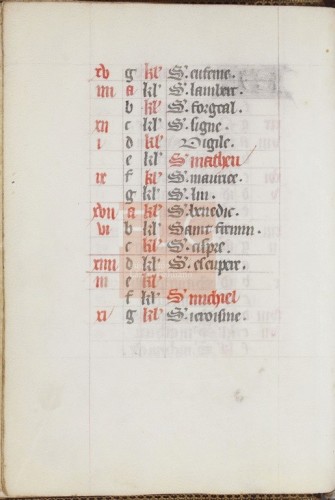 xv g kl' S. eufeme.
iiii a kl' S. lambert.
b kl' S. forgeal.
xii c kl' S. signe.
i d kl' Vigile.
e kl' S matheu
ix f kl' S. maurice.
g kl' S. lin.
xvii a kl' S. benedic.
vi b kl' Saint firmin.
c kl' S. cispre.
xiiii d kl' S. escupere.
iii e kl'
f kl' S michiel
xi g kl' S. ieroisme.